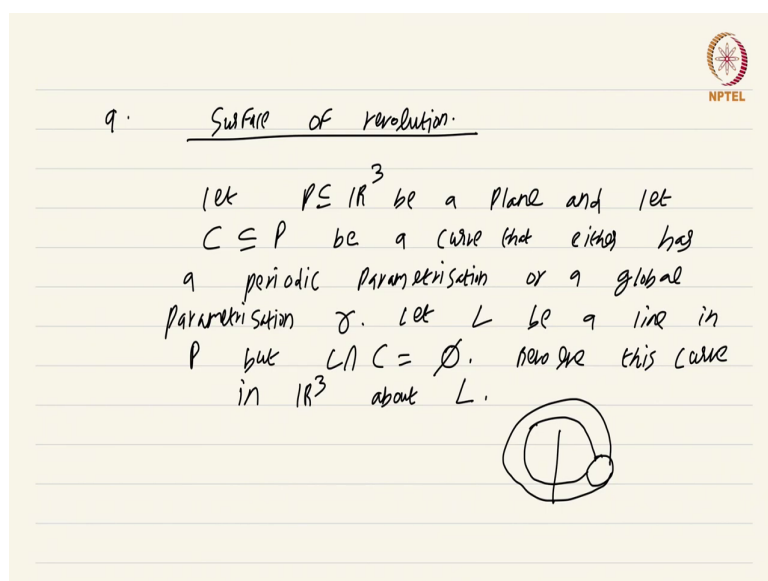 NPTEL
9. Surface of revolution.
Let P ⊆ IR³ be a plane and let
C ⊆ P be a curve that either has
a periodic Parametrisation or a global
Parametrisation γ. Let L be a line in
P but L∩C = Ø. Revolve this curve
in IR³ about L.